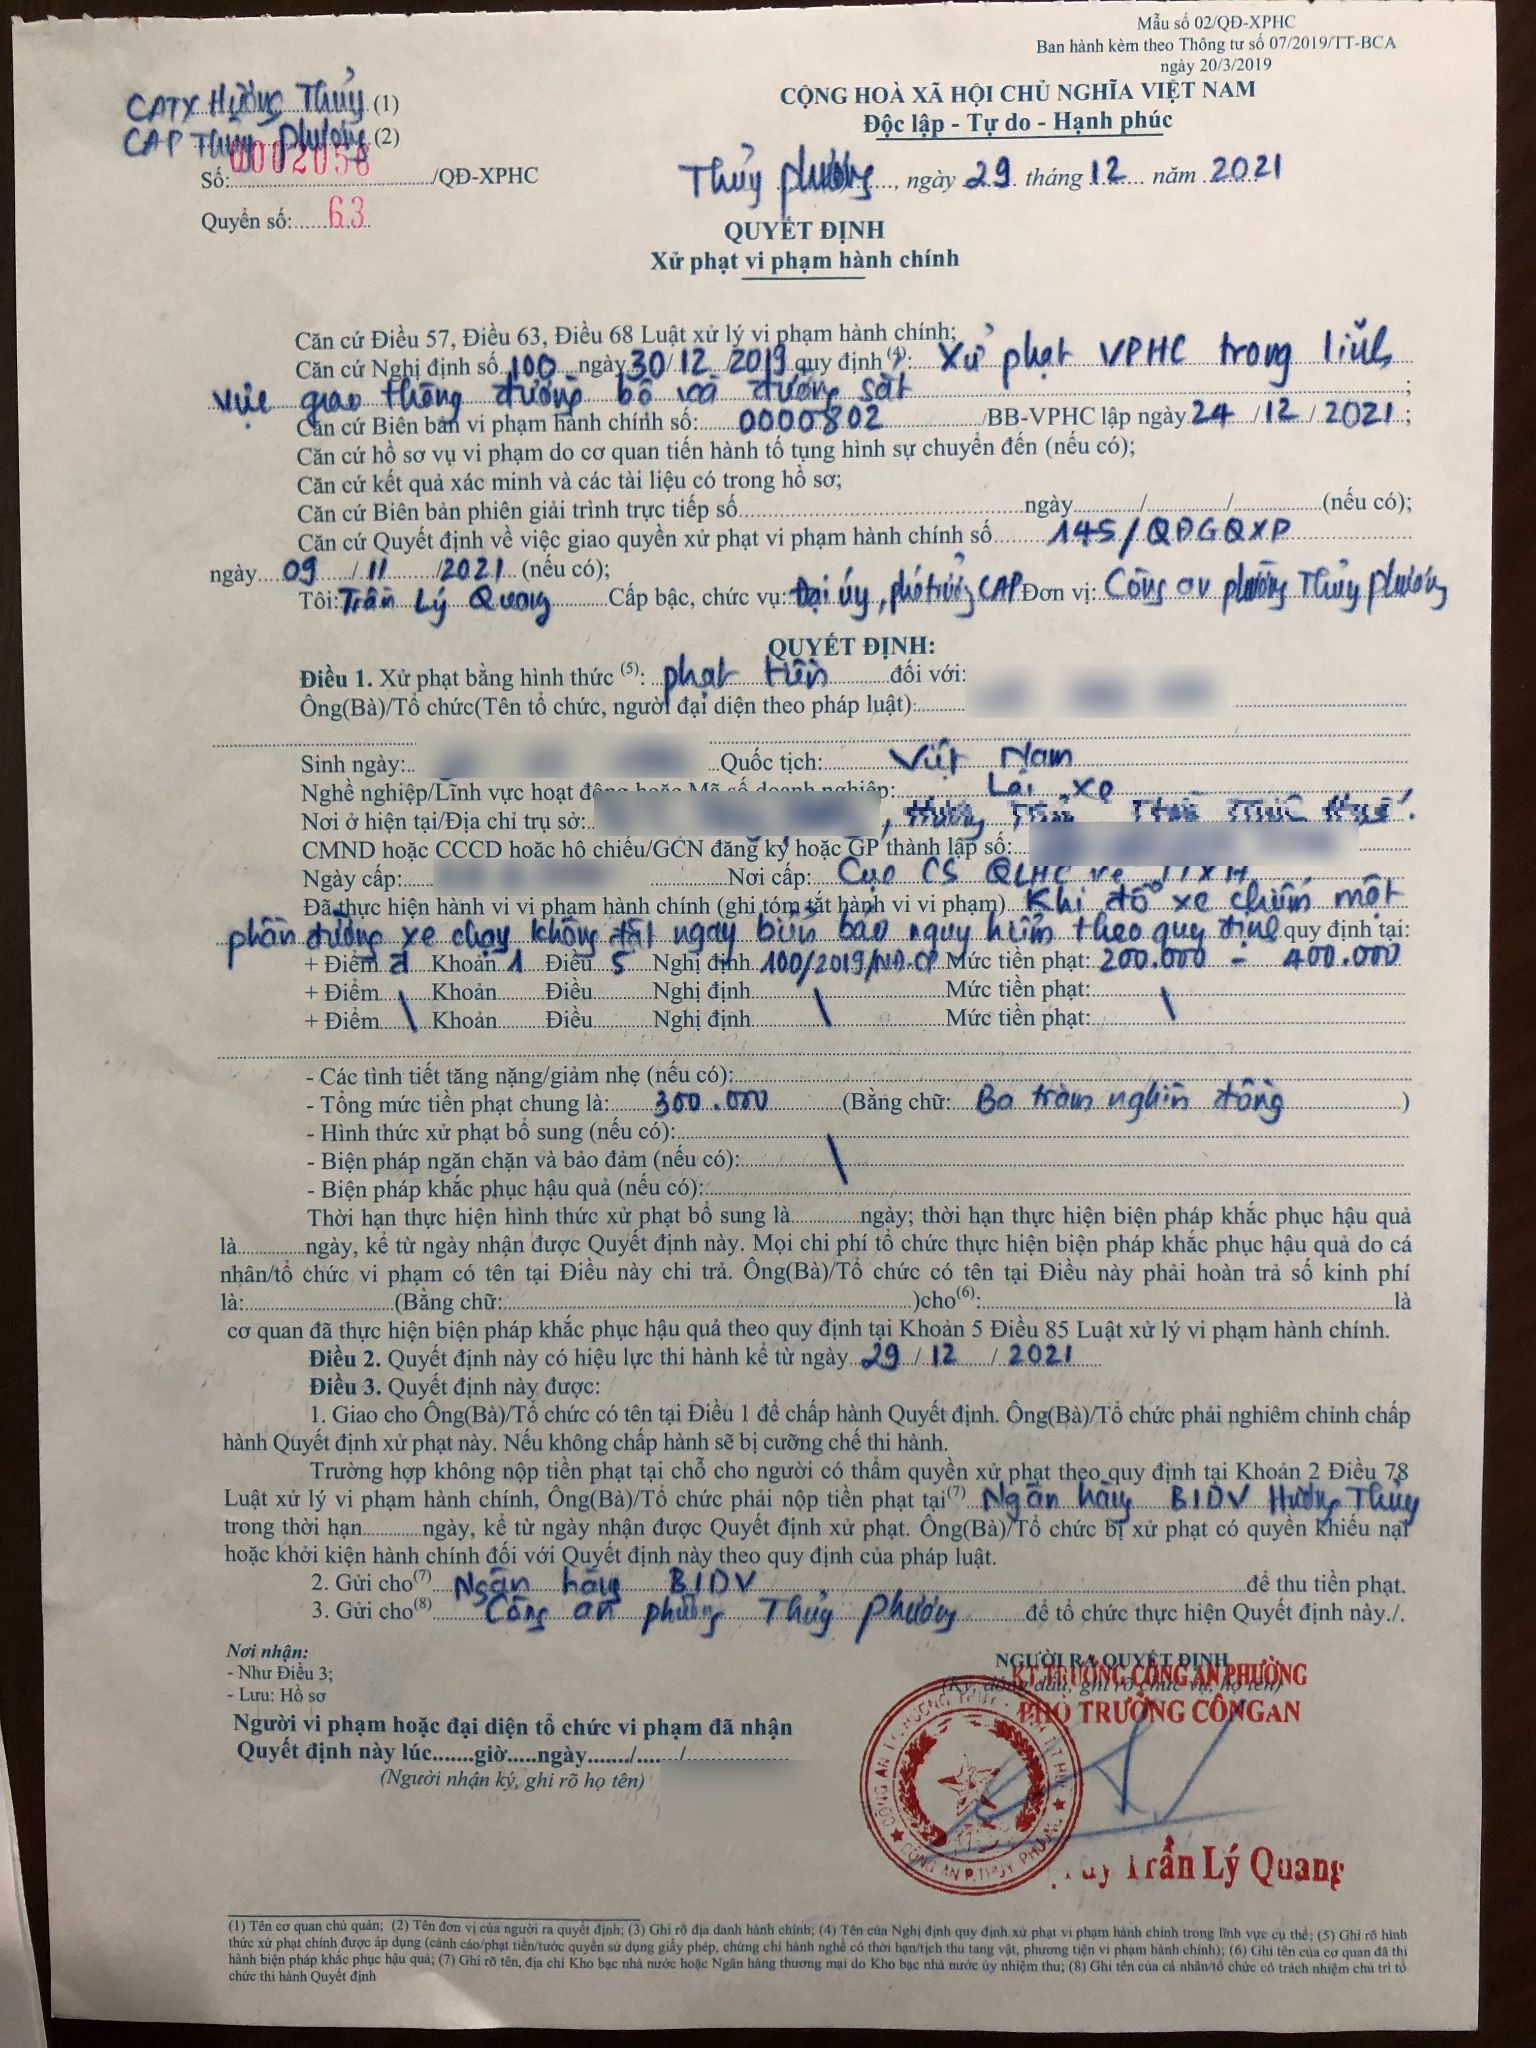 Mẫu số 02/QĐ-XPHC
Ban hành kèm theo Thông tư số 07/2019/TT-BCA
ngày 20/3/2019
CATX Hương Thủy (1)
CAP Thủy Phương (2)
Số: 0002058 /QĐ-XPHC
Quyển số: 63
CỘNG HOÀ XÃ HỘI CHỦ NGHĨA VIỆT NAM
Độc lập - Tự do - Hạnh phúc
Thủy Phương, ngày 29 tháng 12 năm 2021
QUYẾT ĐỊNH
Xử phạt vi phạm hành chính
Căn cứ Điều 57, Điều 63, Điều 68 Luật xử lý vi phạm hành chính;
Căn cứ Nghị định số 100 ngày 30/12/2019 quy định (4): Xử phạt VPHC trong lĩnh
vực giao thông đường bộ và đường sắt ;
Căn cứ Biên bản vi phạm hành chính số: 0000802 /BB-VPHC lập ngày 24/12/2021;
Căn cứ hồ sơ vụ vi phạm do cơ quan tiến hành tố tụng hình sự chuyển đến (nếu có);
Căn cứ kết quả xác minh và các tài liệu có trong hồ sơ;
Căn cứ Biên bản phiên giải trình trực tiếp số ngày / / (nếu có);
Căn cứ Quyết định về việc giao quyền xử phạt vi phạm hành chính số 145/QĐGQXP
ngày 09/11/2021 (nếu có);
Tôi: Trần Lý Quang Cấp bậc, chức vụ: Đại úy, phó trưởng CAP Đơn vị: Công an phường Thủy Phương
QUYẾT ĐỊNH:
Điều 1. Xử phạt bằng hình thức (5): phạt tiền đối với:
Ông(Bà)/Tổ chức(Tên tổ chức, người đại diện theo pháp luật):
Sinh ngày: Quốc tịch: Việt Nam
Nghề nghiệp/Lĩnh vực hoạt động hoặc Mã số doanh nghiệp: Lái xe
Nơi ở hiện tại/Địa chỉ trụ sở: , Hương Thủy, Thừa Thiên Huế.
CMND hoặc CCCD hoặc hộ chiếu/GCN đăng ký hoặc GP thành lập số:
Ngày cấp: Nơi cấp: Cục CS QLHC về TTXH
Đã thực hiện hành vi vi phạm hành chính (ghi tóm tắt hành vi vi phạm) Khi đỗ xe chiếm một
phần đường xe chạy không đặt ngay biển báo nguy hiểm theo quy định quy định tại:
+ Điểm đ Khoản 1 Điều 5 Nghị định 100/2019/NĐ-CP Mức tiền phạt: 200.000 - 400.000
+ Điểm Khoản Điều Nghị định Mức tiền phạt:
+ Điểm Khoản Điều Nghị định Mức tiền phạt:
- Các tình tiết tăng nặng/giảm nhẹ (nếu có):
- Tổng mức tiền phạt chung là: 300.000 (Bằng chữ: Ba trăm nghìn đồng )
- Hình thức xử phạt bổ sung (nếu có):
- Biện pháp ngăn chặn và bảo đảm (nếu có):
- Biện pháp khắc phục hậu quả (nếu có):
Thời hạn thực hiện hình thức xử phạt bổ sung là ngày; thời hạn thực hiện biện pháp khắc phục hậu quả
là ngày, kể từ ngày nhận được Quyết định này. Mọi chi phí tổ chức thực hiện biện pháp khắc phục hậu quả do cá
nhân/tổ chức vi phạm có tên tại Điều này chi trả. Ông(Bà)/Tổ chức có tên tại Điều này phải hoàn trả số kinh phí
là: (Bằng chữ: )cho(6): là
cơ quan đã thực hiện biện pháp khắc phục hậu quả theo quy định tại Khoản 5 Điều 85 Luật xử lý vi phạm hành chính.
Điều 2. Quyết định này có hiệu lực thi hành kể từ ngày 29/12/2021
Điều 3. Quyết định này được:
1. Giao cho Ông(Bà)/Tổ chức có tên tại Điều 1 để chấp hành Quyết định. Ông(Bà)/Tổ chức phải nghiêm chỉnh chấp
hành Quyết định xử phạt này. Nếu không chấp hành sẽ bị cưỡng chế thi hành.
Trường hợp không nộp tiền phạt tại chỗ cho người có thẩm quyền xử phạt theo quy định tại Khoản 2 Điều 78
Luật xử lý vi phạm hành chính, Ông(Bà)/Tổ chức phải nộp tiền phạt tại(7) Ngân hàng BIDV Hương Thủy
trong thời hạn ngày, kể từ ngày nhận được Quyết định xử phạt. Ông(Bà)/Tổ chức bị xử phạt có quyền khiếu nại
hoặc khởi kiện hành chính đối với Quyết định này theo quy định của pháp luật.
2. Gửi cho(7) Ngân hàng BIDV để thu tiền phạt.
3. Gửi cho(8) Công an phường Thủy Phương để tổ chức thực hiện Quyết định này./.
Nơi nhận:
- Như Điều 3;
- Lưu: Hồ sơ
Người vi phạm hoặc đại diện tổ chức vi phạm đã nhận
Quyết định này lúc.......giờ.....ngày......./......./
(Người nhận ký, ghi rõ họ tên)
NGƯỜI RA QUYẾT ĐỊNH
(Ký, đóng dấu, ghi rõ chức vụ, họ tên)
KT.TRƯỞNG CÔNG AN PHƯỜNG
PHÓ TRƯỞNG CÔNG AN
CÔNG AN P.THỦY PHƯƠNG
Trần Lý Quang
(1) Tên cơ quan chủ quản; (2) Tên đơn vị của người ra quyết định; (3) Ghi rõ địa danh hành chính; (4) Tên của Nghị định quy định xử phạt vi phạm hành chính trong lĩnh vực cụ thể; (5) Ghi rõ hình
thức xử phạt chính được áp dụng (cảnh cáo/phạt tiền/tước quyền sử dụng giấy phép, chứng chỉ hành nghề có thời hạn/tịch thu tang vật, phương tiện vi phạm hành chính); (6) Ghi tên của cơ quan đã thi
hành biện pháp khắc phục hậu quả; (7) Ghi rõ tên, địa chỉ Kho bạc nhà nước hoặc Ngân hàng thương mại do Kho bạc nhà nước ủy nhiệm thu; (8) Ghi tên của cá nhân/tổ chức có trách nhiệm chủ trì tổ
chức thi hành Quyết định